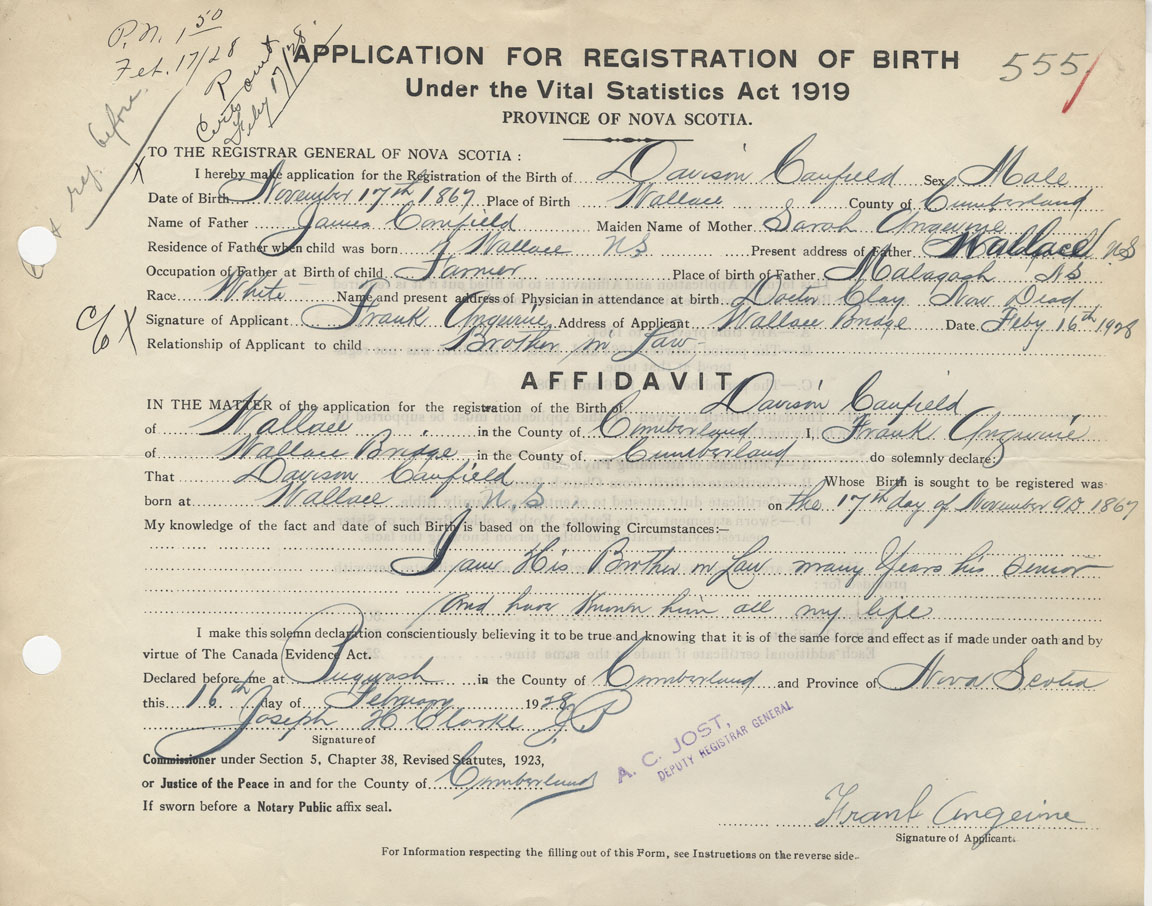 P.N. 1 50
Feb. 17/28
Certs out
Feby 17/28
reg. before
APPLICATION FOR REGISTRATION OF BIRTH
555
Under the Vital Statistics Act 1919
PROVINCE OF NOVA SCOTIA.
X TO THE REGISTRAR GENERAL OF NOVA SCOTIA:
I hereby make application for the Registration of the Birth of Davison Canfield Sex Male
Date of Birth November 17th 1867 Place of Birth Wallace County of Cumberland
Name of Father James Canfield Maiden Name of Mother Sarah Angevine
Residence of Father when child was born Wallace NS Present address of Father Wallace NS
Occupation of Father at Birth of child Farmer Place of birth of Father Malagash NS
Race White Name and present address of Physician in attendance at birth Doctor Clay Now Dead
X Signature of Applicant Frank Angevine Address of Applicant Wallace Bridge Date Feby 16th 1928
Relationship of Applicant to child Brother in Law
AFFIDAVIT
IN THE MATTER of the application for the registration of the Birth of Davison Canfield
of Wallace in the County of Cumberland I, Frank Angevine
of Wallace Bridge in the County of Cumberland do solemnly declare:
That Davison Canfield Whose Birth is sought to be registered was
born at Wallace N.S on the 17th day of November AD. 1867
My knowledge of the fact and date of such Birth is based on the following Circumstances:—
I am His Brother in Law many Years his Senior
And have Known him all my life
I make this solemn declaration conscientiously believing it to be true and knowing that it is of the same force and effect as if made under oath and by
virtue of The Canada Evidence Act.
Declared before me at Pugwash in the County of Cumberland and Province of Nova Scotia
this 16th day of February 1928
Joseph H Clarke J P
Signature of
Commissioner under Section 5, Chapter 38, Revised Statutes, 1923,
A. C. JOST,
DEPUTY REGISTRAR GENERAL
or Justice of the Peace in and for the County of Cumberland
If sworn before a Notary Public affix seal.
Frank Angevine
Signature of Applicant.
For Information respecting the filling out of this Form, see Instructions on the reverse side.